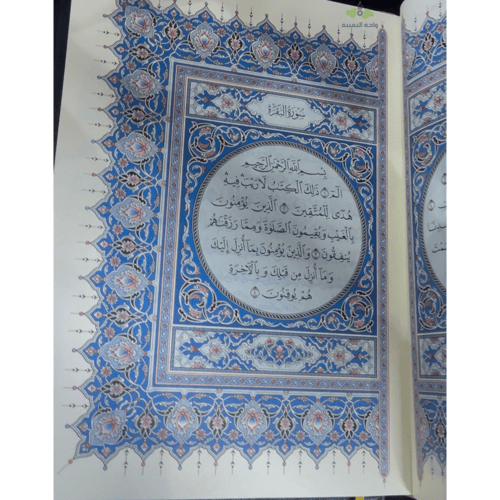 واحة النفيسة
سُورَةُ البَقَرَةِ
بِسْمِ اللَّهِ الرَّحْمَٰنِ الرَّحِيمِ
الٓمٓ ۝ ذَٰلِكَ الْكِتَٰبُ لَا رَيْبَ فِيهِ
هُدًى لِّلْمُتَّقِينَ ۝ الَّذِينَ يُؤْمِنُونَ
بِالْغَيْبِ وَيُقِيمُونَ الصَّلَوٰةَ وَمِمَّا رَزَقْنَٰهُمْ
يُنفِقُونَ ۝ وَالَّذِينَ يُؤْمِنُونَ بِمَا أُنزِلَ إِلَيْكَ
وَمَا أُنزِلَ مِن قَبْلِكَ وَبِالْآخِرَةِ
هُمْ يُوقِنُونَ ۝